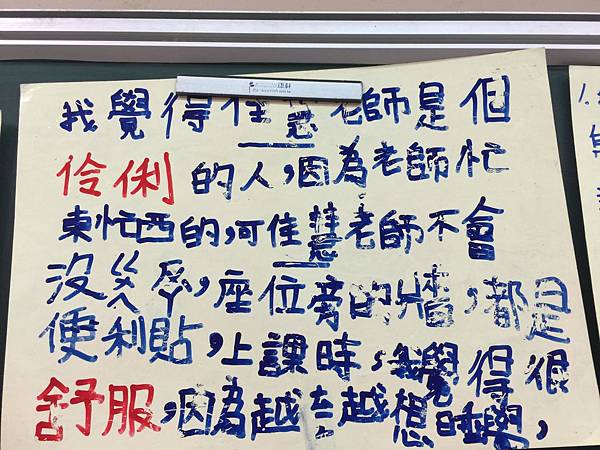 我覺得佳慧老師是個
伶俐的人,因為老師忙
東忙西的,可佳慧老師不會
沒,座位旁的牆,都是
便利貼,上課時,我覺得很
舒服,因為越越想睡學,